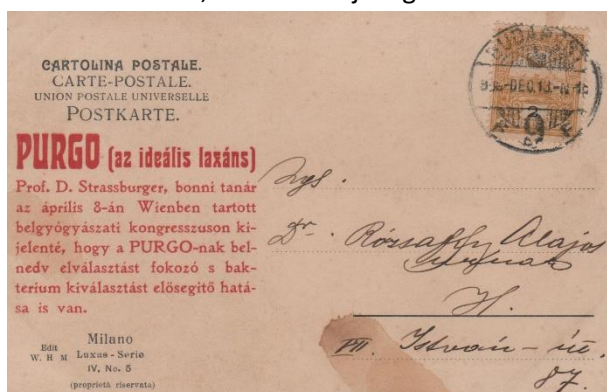 CARTOLINA POSTALE.
CARTE-POSTALE.
UNION POSTALE UNIVERSELLE
POSTKARTE.
PURGO (az ideális laxáns)
Prof. D. Strassburger, bonni tanár
az április 8-án Wienben tartott
belgyógyászati kongresszuson ki-
jelenté, hogy a PURGO-nak bel-
nedv elválasztást fokozó s bak-
terium kiválasztást elősegítő hatá-
sa is van.
Edit
W. H M
Milano
Luxus-Serie
IV, No. 5
(proprietà riservata)
BUDAPEST
DEC. 13
Dr. Rózsaffy Alajos
VII. István-út,
87.